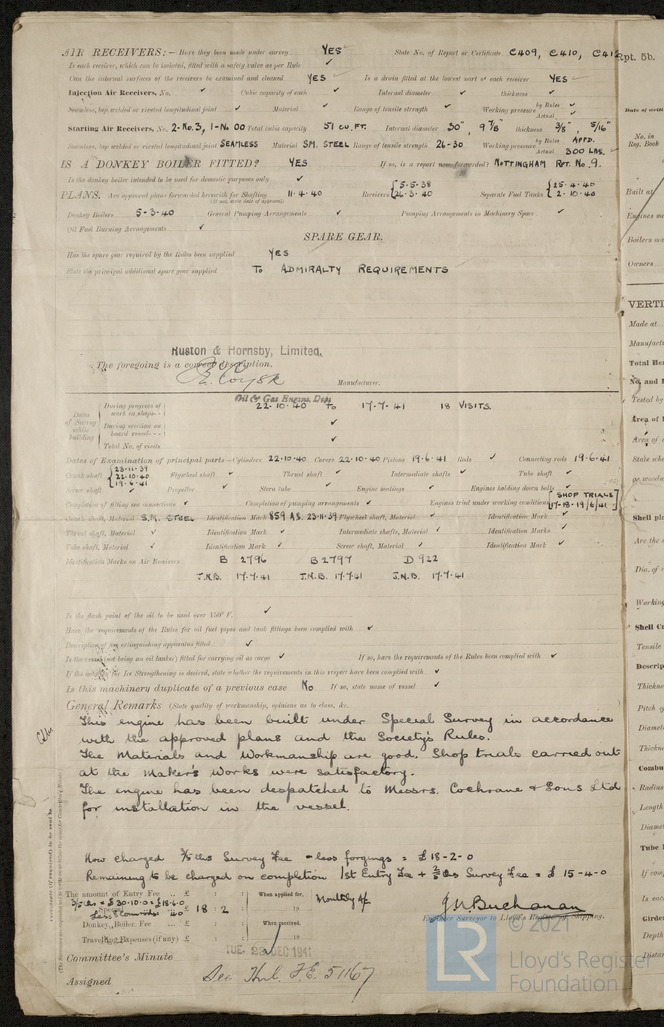 AIR RECEIVERS:— Have they been made under survey YES ✓ State No. of Report or Certificate C409, C410, C412
Is each receiver, which can be isolated, fitted with a safety valve as per Rule ✓
Can the internal surfaces of the receivers be examined and cleaned YES ✓ Is a drain fitted at the lowest part of each receiver YES ✓
Injection Air Receivers, No. ✓ Cubic capacity of each ✓ Internal diameter ✓ thickness ✓
Seamless, lap welded or riveted longitudinal joint ✓ Material ✓ Range of tensile strength ✓ Working pressure by Rules ✓ Actual ✓
Starting Air Receivers, No. 2-No.3, 1-No 00 Total cubic capacity 51 CU.FT. Internal diameter 30", 9 7/8" thickness 3/8", 5/16"
Seamless, lap welded or riveted longitudinal joint SEAMLESS Material S.M. STEEL Range of tensile strength 26-30 Working pressure by Rules APPD. Actual 300 LBS.
IS A DONKEY BOILER FITTED? YES If so, is a report now forwarded? NOTTINGHAM RPT. NO. 9.
Is the donkey boiler intended to be used for domestic purposes only ✓
PLANS. Are approved plans forwarded herewith for Shafting 11.4.40 Receivers { 5.5.38 26.3.40 Separate Fuel Tanks { 25.4.40 2.10.40
(If not, state date of approval)
Donkey Boilers 5-3-40 General Pumping Arrangements ✓ Pumping Arrangements in Machinery Space ✓
Oil Fuel Burning Arrangements ✓
SPARE GEAR.
Has the spare gear required by the Rules been supplied YES
State the principal additional spare gear supplied TO ADMIRALTY REQUIREMENTS
Ruston & Hornsby, Limited.
The foregoing is a correct description,
Manufacturer.
Oil & Gas Engine Dept
Dates of Survey while building
During progress of work in shops - - 22.10.40 TO 17.7.41 18 VISITS.
During erection on board vessel - - - ✓
Total No. of visits ✓
Dates of Examination of principal parts—Cylinders 22.10.40 Covers 22.10.40 Pistons 19.6.41 Rods ✓ Connecting rods 19.6.41
Crank shaft { 23.11.39 22.10.40 19.6.41 Flywheel shaft ✓ Thrust shaft ✓ Intermediate shafts ✓ Tube shaft ✓
Screw shaft ✓ Propeller ✓ Stern tube ✓ Engine seatings ✓ Engines holding down bolts ✓
Completion of fitting sea connections ✓ Completion of pumping arrangements ✓ Engines tried under working conditions [SHOP TRIALS 17-18-19/6/41]
Crank shaft, Material S.M. STEEL Identification Mark 859 A.S. 23.11.39 Flywheel shaft, Material ✓ Identification Mark ✓
Thrust shaft, Material ✓ Identification Mark ✓ Intermediate shafts, Material ✓ Identification Marks ✓
Tube shaft, Material ✓ Identification Mark ✓ Screw shaft, Material ✓ Identification Mark ✓
Identification Marks on Air Receivers B 2796 B 2797 D 922
J.N.B. 17.7.41 J.N.B. 17.7.41 J.N.B. 17.7.41
Is the flash point of the oil to be used over 150° F. ✓
Have the requirements of the Rules for oil fuel pipes and tank fittings been complied with ✓
Description of fire extinguishing apparatus fitted ✓
Is the vessel (not being an oil tanker) fitted for carrying oil as cargo ✓ If so, have the requirements of the Rules been complied with ✓
If the notation for Ice Strengthening is desired, state whether the requirements in this respect have been complied with ✓
Is this machinery duplicate of a previous case No If so, state name of vessel ✓
General Remarks (State quality of workmanship, opinions as to class, &c.
This engine has been built under Special Survey in accordance
with the approved plans and the Society's Rules.
The Materials and Workmanship are good. Shop trials carried out
at the Maker's Works were satisfactory.
The engine has been despatched to Messrs. Cochrane & Sons Ltd
for installation in the vessel.
Now charged 3/5 ths Survey Fee - less forgings = £18-2-0
Remaining to be charged on completion 1st Entry Fee + 2/5 ths Survey Fee = £ 15-4-0
The amount of Entry Fee .. £ : : When applied for,
3/5 ths = £30.10.0 = £18.6.0 Monthly A/c
£ 18 : 2 :
Donkey Boiler Fee .. £ : : When received,
Travelling Expenses (if any) £ : : 19
J.N. Buchanan
Engineer Surveyor to Lloyd's Register of Shipping.
Committee's Minute TUE. 23 DEC 1941
Assigned See Hul. F.E. 51167
© 2021
LR
Lloyd's Register
Foundation
Rpt. 5b.
No. in
Reg. Book
Built at
Engines ma
Boilers ma
Owners
VERTI
Made at
Manufactu
Total Hea
No. and
Tested by
Area of
Area of
State whe
Shell pla
Are the
Dia. of
Working
Shell Co
Tensile
Descrip
Thickne
Pitch of
Diamete
Thickne
Combu
Radius
Length
Diamet
Tube
If comp
Is each
Girder
Depth
Distan